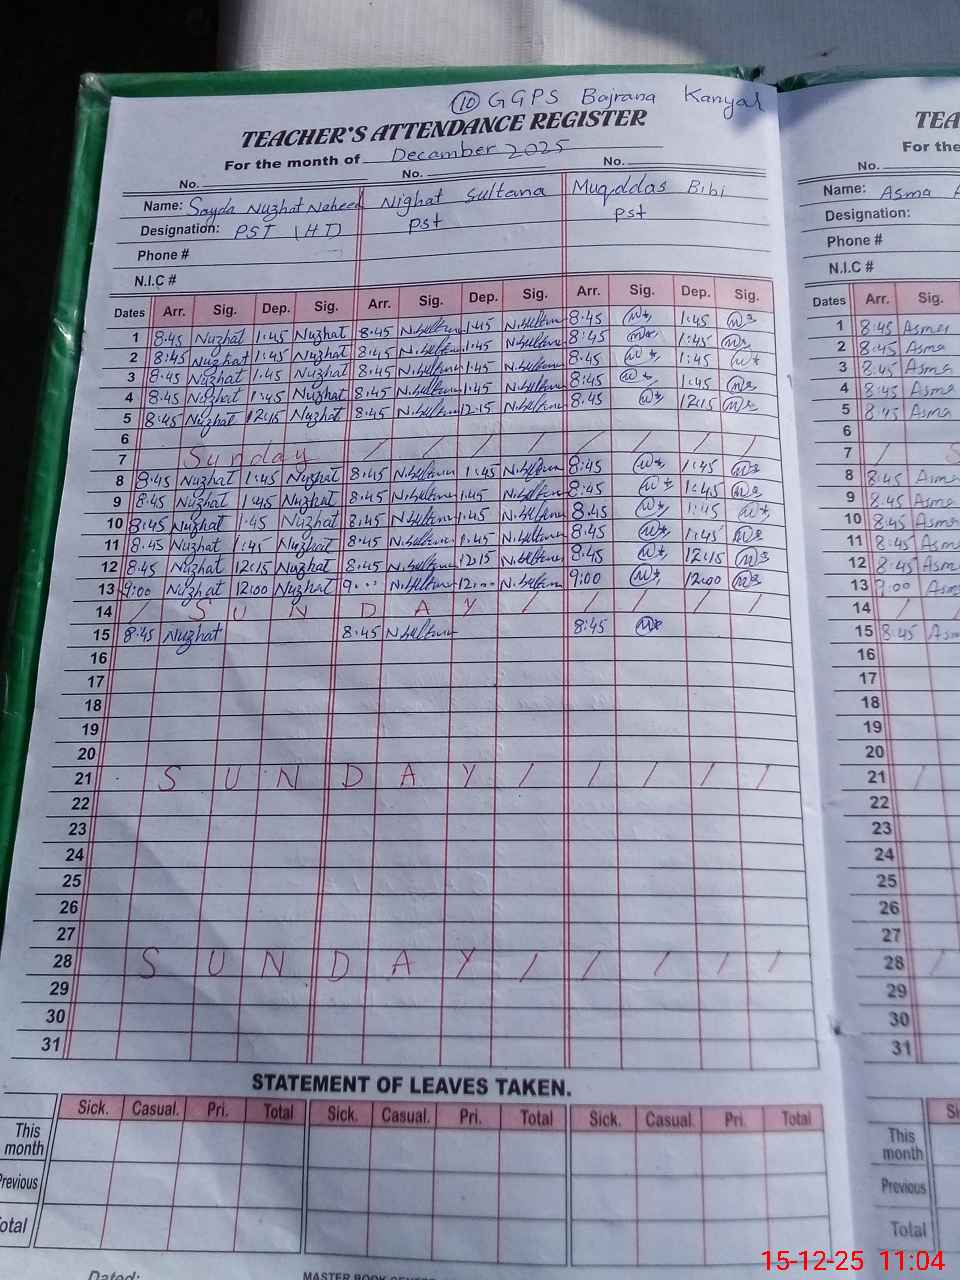 (10) GGPS Bajrana Kanyal
TEACHER'S ATTENDANCE REGISTER
For the month of December 2025
No. No. No.
Name: Sayda Nuzhat Naheed Nighat Sultana Muqddas Bibi
Designation: PST (HT) Pst Pst
Phone #
N.I.C #
Dates Arr. Sig. Dep. Sig. Arr. Sig. Dep. Sig. Arr. Sig. Dep. Sig.
1 8:45 Nuzhat 1:45 Nuzhat 8:45 N.Sultana 1:45 N.Sultana 8:45 1:45
2 8:45 Nuzhat 1:45 Nuzhat 8:45 N.Sultana 1:45 N.Sultana 8:45 1:45
3 8:45 Nuzhat 1:45 Nuzhat 8:45 N.Sultana 1:45 N.Sultana 8:45 1:45
4 8:45 Nuzhat 1:45 Nuzhat 8:45 N.Sultana 1:45 N.Sultana 8:45 1:45
5 8:45 Nuzhat 12:15 Nuzhat 8:45 N.Sultana 12:15 N.Sultana 8:45 12:15
6
7 Sunday / / / / / / / /
8 8:45 Nuzhat 1:45 Nuzhat 8:45 N.Sultana 1:45 N.Sultana 8:45 1:45
9 8:45 Nuzhat 1:45 Nuzhat 8:45 N.Sultana 1:45 N.Sultana 8:45 1:45
10 8:45 Nuzhat 1:45 Nuzhat 8:45 N.Sultana 1:45 N.Sultana 8:45 1:45
11 8:45 Nuzhat 1:45 Nuzhat 8:45 N.Sultana 1:45 N.Sultana 8:45 1:45
12 8:45 Nuzhat 12:15 Nuzhat 8:45 N.Sultana 12:15 N.Sultana 8:45 12:15
13 9:00 Nuzhat 12:00 Nuzhat 9:00 N.Sultana 12:00 N.Sultana 9:00 12:00
14 / S U N D A Y / / / / /
15 8:45 Nuzhat 8:45 N.Sultana 8:45
16
17
18
19
20
21 S U N D A Y / / / / /
22
23
24
25
26
27
28 S U N D A Y / / / / /
29
30
31
STATEMENT OF LEAVES TAKEN.
Sick. Casual. Pri. Total Sick. Casual. Pri. Total Sick. Casual. Pri. Total
This month
Previous
Total
Dated:
MASTER BOOK
TEA
For the
No.
Name: Asma
Designation:
Phone #
N.I.C #
Dates Arr. Sig.
1 8:45 Asma
2 8:45 Asma
3 8:45 Asma
4 8:45 Asma
5 8:45 Asma
6
7 / S
8 8:45 Asma
9 8:45 Asma
10 8:45 Asma
11 8:45 Asma
12 8:45 Asma
13 9:00 Asma
14 / /
15 8:45 Asm
16
17
18
19
20
21 /
22
23
24
25
26
27
28 /
29
30
31
This month
Previous
Total
15-12-25 11:04